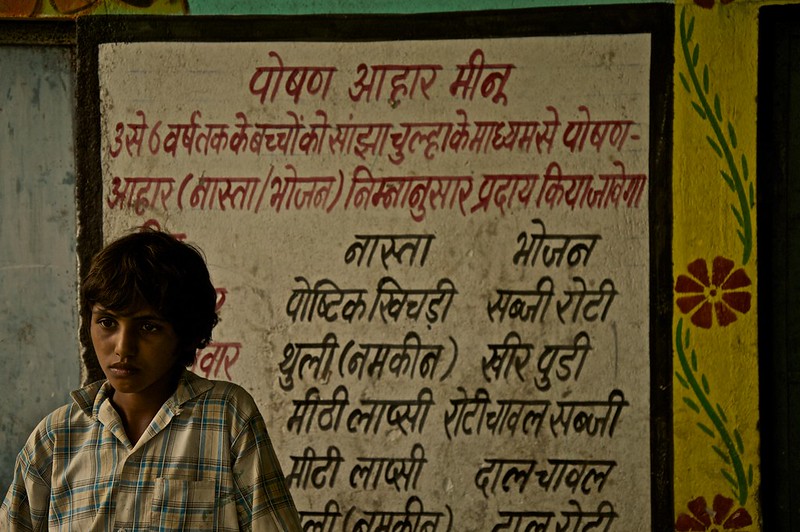 पोषण आहार मीनू
3 से 6 वर्ष तक के बच्चों को सांझा चुल्हा के माध्यम से पोषण-
आहार (नास्ता/भोजन) निम्नानुसार प्रदाय किया जावेगा
नास्ता भोजन
पोष्टिक खिचड़ी सब्जी रोटी
वार थुली (नमकीन) खीर पुडी
मीठी लाप्सी रोटी चावल सब्जी
मीटी लाप्सी दाल चावल
(नमकीन) दाल रोटी